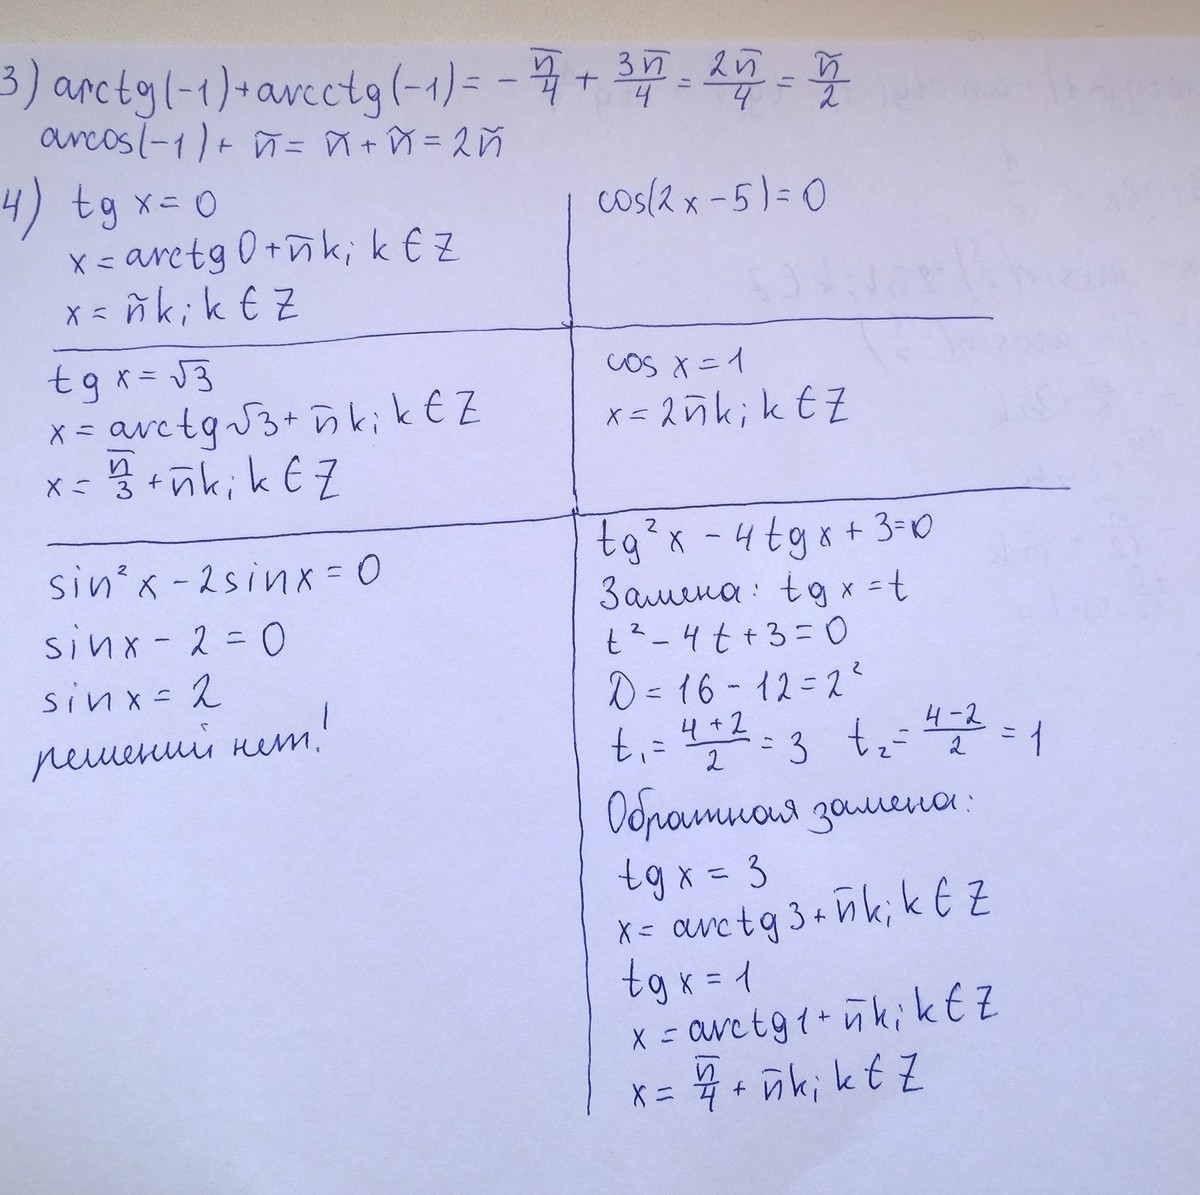 3) arctg(-1)+arcctg(-1)= -π/4 + 3π/4 = 2π/4 = π/2
arcos(-1)+ π = π + π = 2π
4) tg x = 0
x = arctg 0 + πk; k ∈ Z
x = πk; k ∈ Z
cos(2x-5)=0
tg x = √3
x = arctg√3 + πk; k ∈ Z
x = π/3 + πk; k ∈ Z
cos x = 1
x = 2πk; k ∈ Z
sin²x - 2sinx = 0
sinx - 2 = 0
sinx = 2
решений нет!
tg²x - 4tgx + 3 = 0
Замена: tg x = t
t² - 4t + 3 = 0
D = 16 - 12 = 2²
t₁ = (4+2)/2 = 3 t₂ = (4-2)/2 = 1
Обратная замена:
tg x = 3
x = arctg 3 + πk; k ∈ Z
tg x = 1
x = arctg1 + πk; k ∈ Z
x = π/4 + πk; k ∈ Z